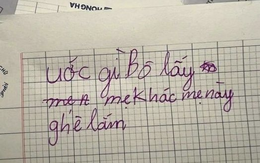 HỒNG HA
ước gì Bố lấy
mẹ khác mẹ này
ghê lắm